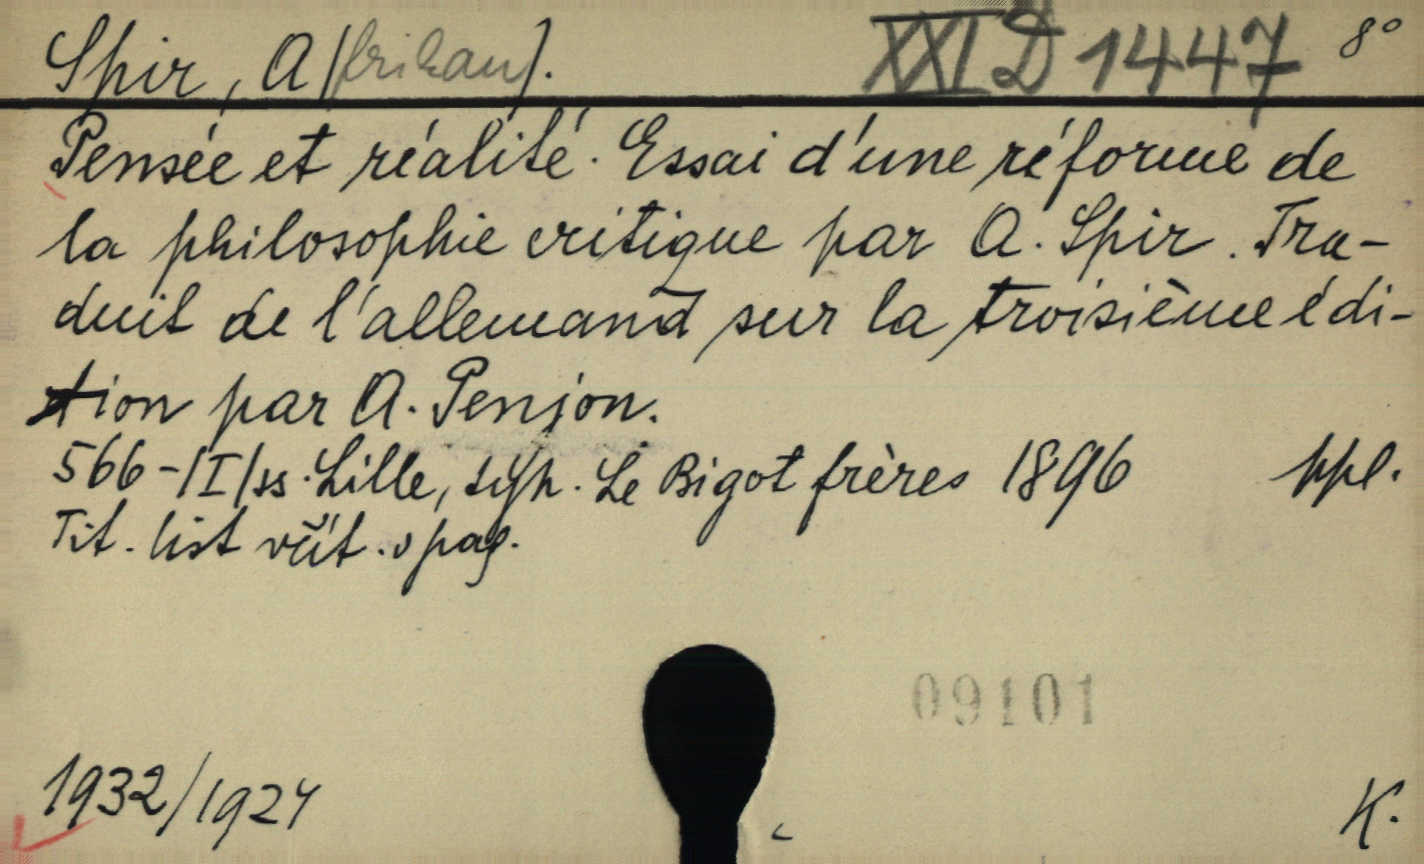 Spir, A[frikan].
XXI D 1447 8°
Pensée et réalité. Essai d'une réforme de
la philosophie critique par A. Spir. Tra-
duit de l'allemand sur la troisième édi-
tion par A. Penjon.
566-/I/ss. Lille, typ. Le Bigot frères 1896 ppl.
Tit. list včít. v pag.
09101
1932/1927
K.